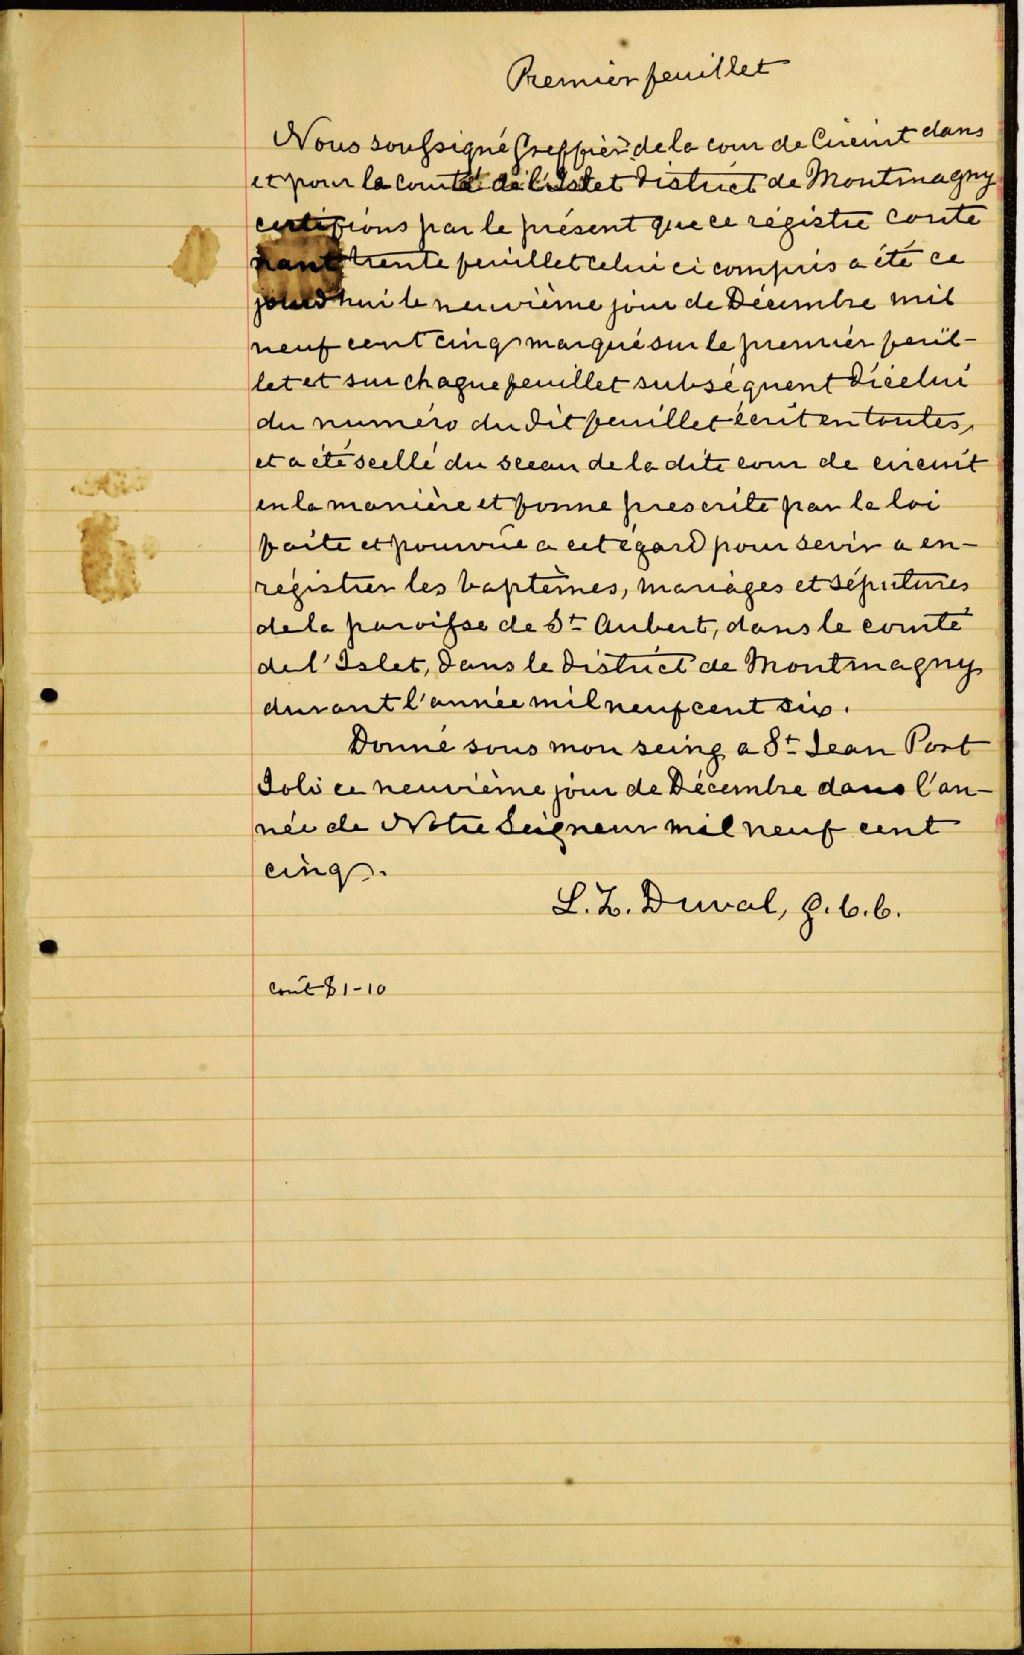 Premier feuillet
Nous soussigné Greffier de la cour de Circuit dans
et pour le comté de l'Islet District de Montmagny
certifions par le présent que ce régistre conte
nant trente feuillet celui ci compris a été ce
jourd'hui le neuvième jour de Décembre mil
neuf cent cinq marqué sur le premier feuil-
let et sur chaque feuillet subséquent d'icelui
du numéro du dit feuillet écrit en toutes,
et a été scellé du sceau de la dite cour de circuit
en la manière et forme prescrite par la loi
faite et pourvue a cet égard pour servir a en-
régistrer les baptêmes, mariages et sépultures
de la paroisse de St Aubert, dans le comté
de l'Islet, dans le district de Montmagny
durant l'année mil neuf cent six.
Donné sous mon seing a St Jean Port
Joli ce neuvième jour de Décembre dans l'an-
née de Notre Seigneur mil neuf cent
cinq.
L. Z. Duval, g.c.c.
coût $1-10